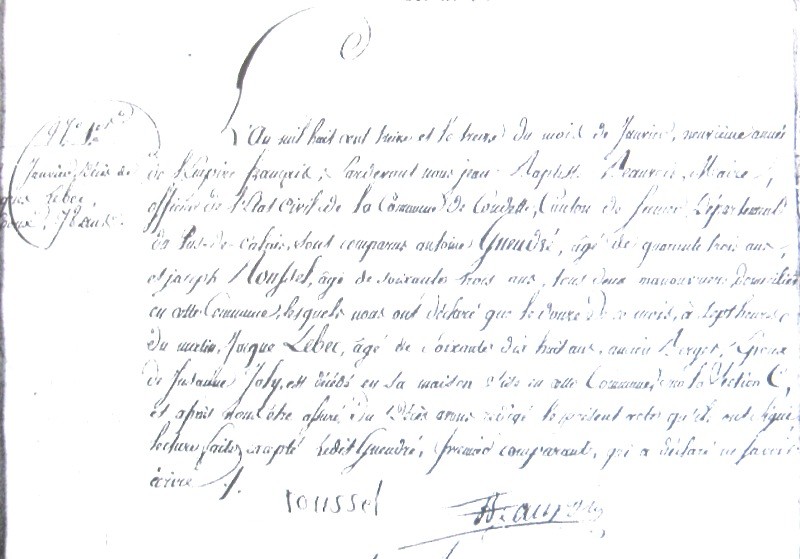 N° 1er
Janvier, Décès de
Jacques Lebec,
Époux, 78 ans.
L'An mil huit cent treize et le treize du mois de Janvier, neuvième année
de l'Empire français, Pardevant nous jean-Baptiste Beauvois, Maire,
officier de l'Etat Civil de la Commune de Condette, Canton de Samer, Département
du Pas-de-Calais, sont comparus antoine Gueudré, âgé de quarante trois ans,
et joseph Roussel, âgé de soixante trois ans, tous deux manouvriers domiciliés
en cette Commune, lesquels nous ont déclaré que le douze de ce mois, à sept heures
du matin, Jacque Lebec, âgé de Soixante dix huit ans, ancien Berger, Epoux
de Susanne Joly, est décédé en sa maison sise en cette Commune, Section C,
et après nous être assuré du Décès avons rédigé le présent acte qu'ils ont signé
lecture faite, excepté ledit Gueudré, premier comparant, qui a déclaré ne savoir
écrire.
roussel
Beauvois